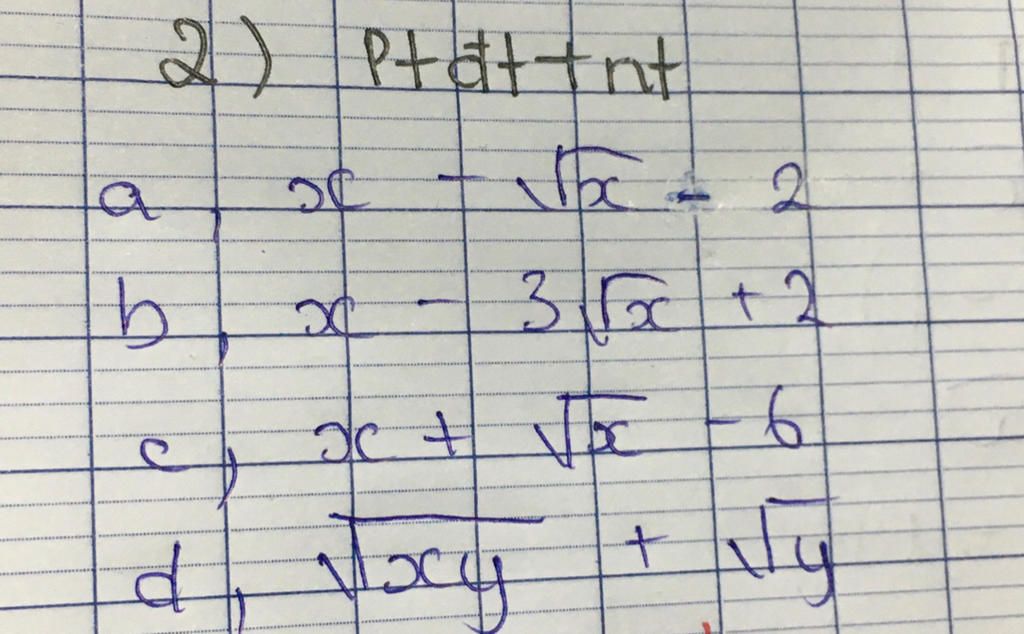 2) Ptđt + nt
a, x - √x - 2
b, x - 3√x + 2
c, x + √x - 6
d, √xy + √y